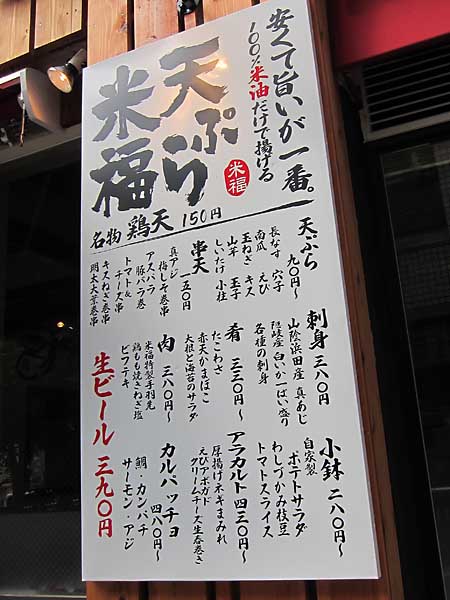 安くて旨いが一番。
100%米油だけで揚げる
天ぷら
米福
米福
名物 鶏天 150円
天ぷら 九〇円~
長なす 穴子
南瓜 えび
玉ねぎ キス
山芋 玉子
しいたけ 小柱
串天 一五〇円
真アジ
梅しそ巻串
アスパラ
豚バラ巻
トマト&
チーズ串
キスねぎ巻串
明太大葉巻串
刺身 三八〇円~
山陰浜田産 真あじ
隠岐産 白いか一ぱい盛り
各種の刺身
肴 三三〇円~
たこわさ
赤天かまぼこ
大根と海苔のサラダ
肉 三八〇円~
米福特製手羽先
鶏もも焼きねぎ塩
ビフテキ
生ビール 三九〇円
小鉢 二八〇円~
自家製
ポテトサラダ
わしづかみ枝豆
トマトスライス
アラカルト 四三〇円~
厚揚げネギまみれ
えびアボガド
クリームチーズ生春巻き
カルパッチョ 四八〇円~
鯛・カンパチ
サーモン・アジ